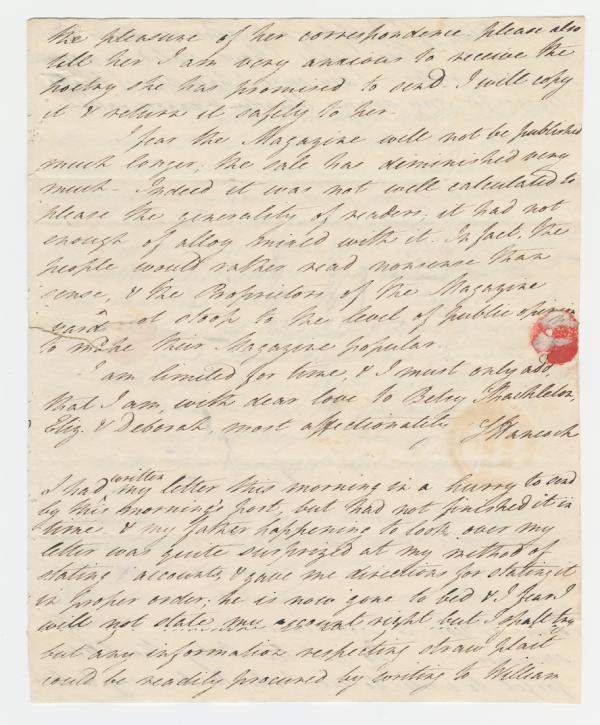 the pleasure of her correspondence. please also
tell her I am very anxious to receive the
poetry she has promised to send. I will copy
it & return it safely to her.
I fear the Magazine will not be published
much longer; the sale has diminished very
much. Indeed it was not well calculated to
please the generality of readers; it had not
enough of alloy mixed with it. In fact, the
people would rather read nonsense than
sense, & the Proprietors of the Magazine
ot stoop to the level of public opinion
to make their Magazine popular.
I am limited for time, & I must only add,
that I am, with dear love to Betsy Shackleton,
Eliz. & Deborah, most affectionately Hancock
written
I had my letter this morning in a hurry to send
by this morning's post, but had not finished it in
time & my father happening to look over my
letter was quite surprized at my method of
stating accounts, & gave me directions for stating it
in proper order; he is now gone to bed & I fear I
will not state my account right but I shall try
but any information respecting straw plait
could be readily procured by writing to William